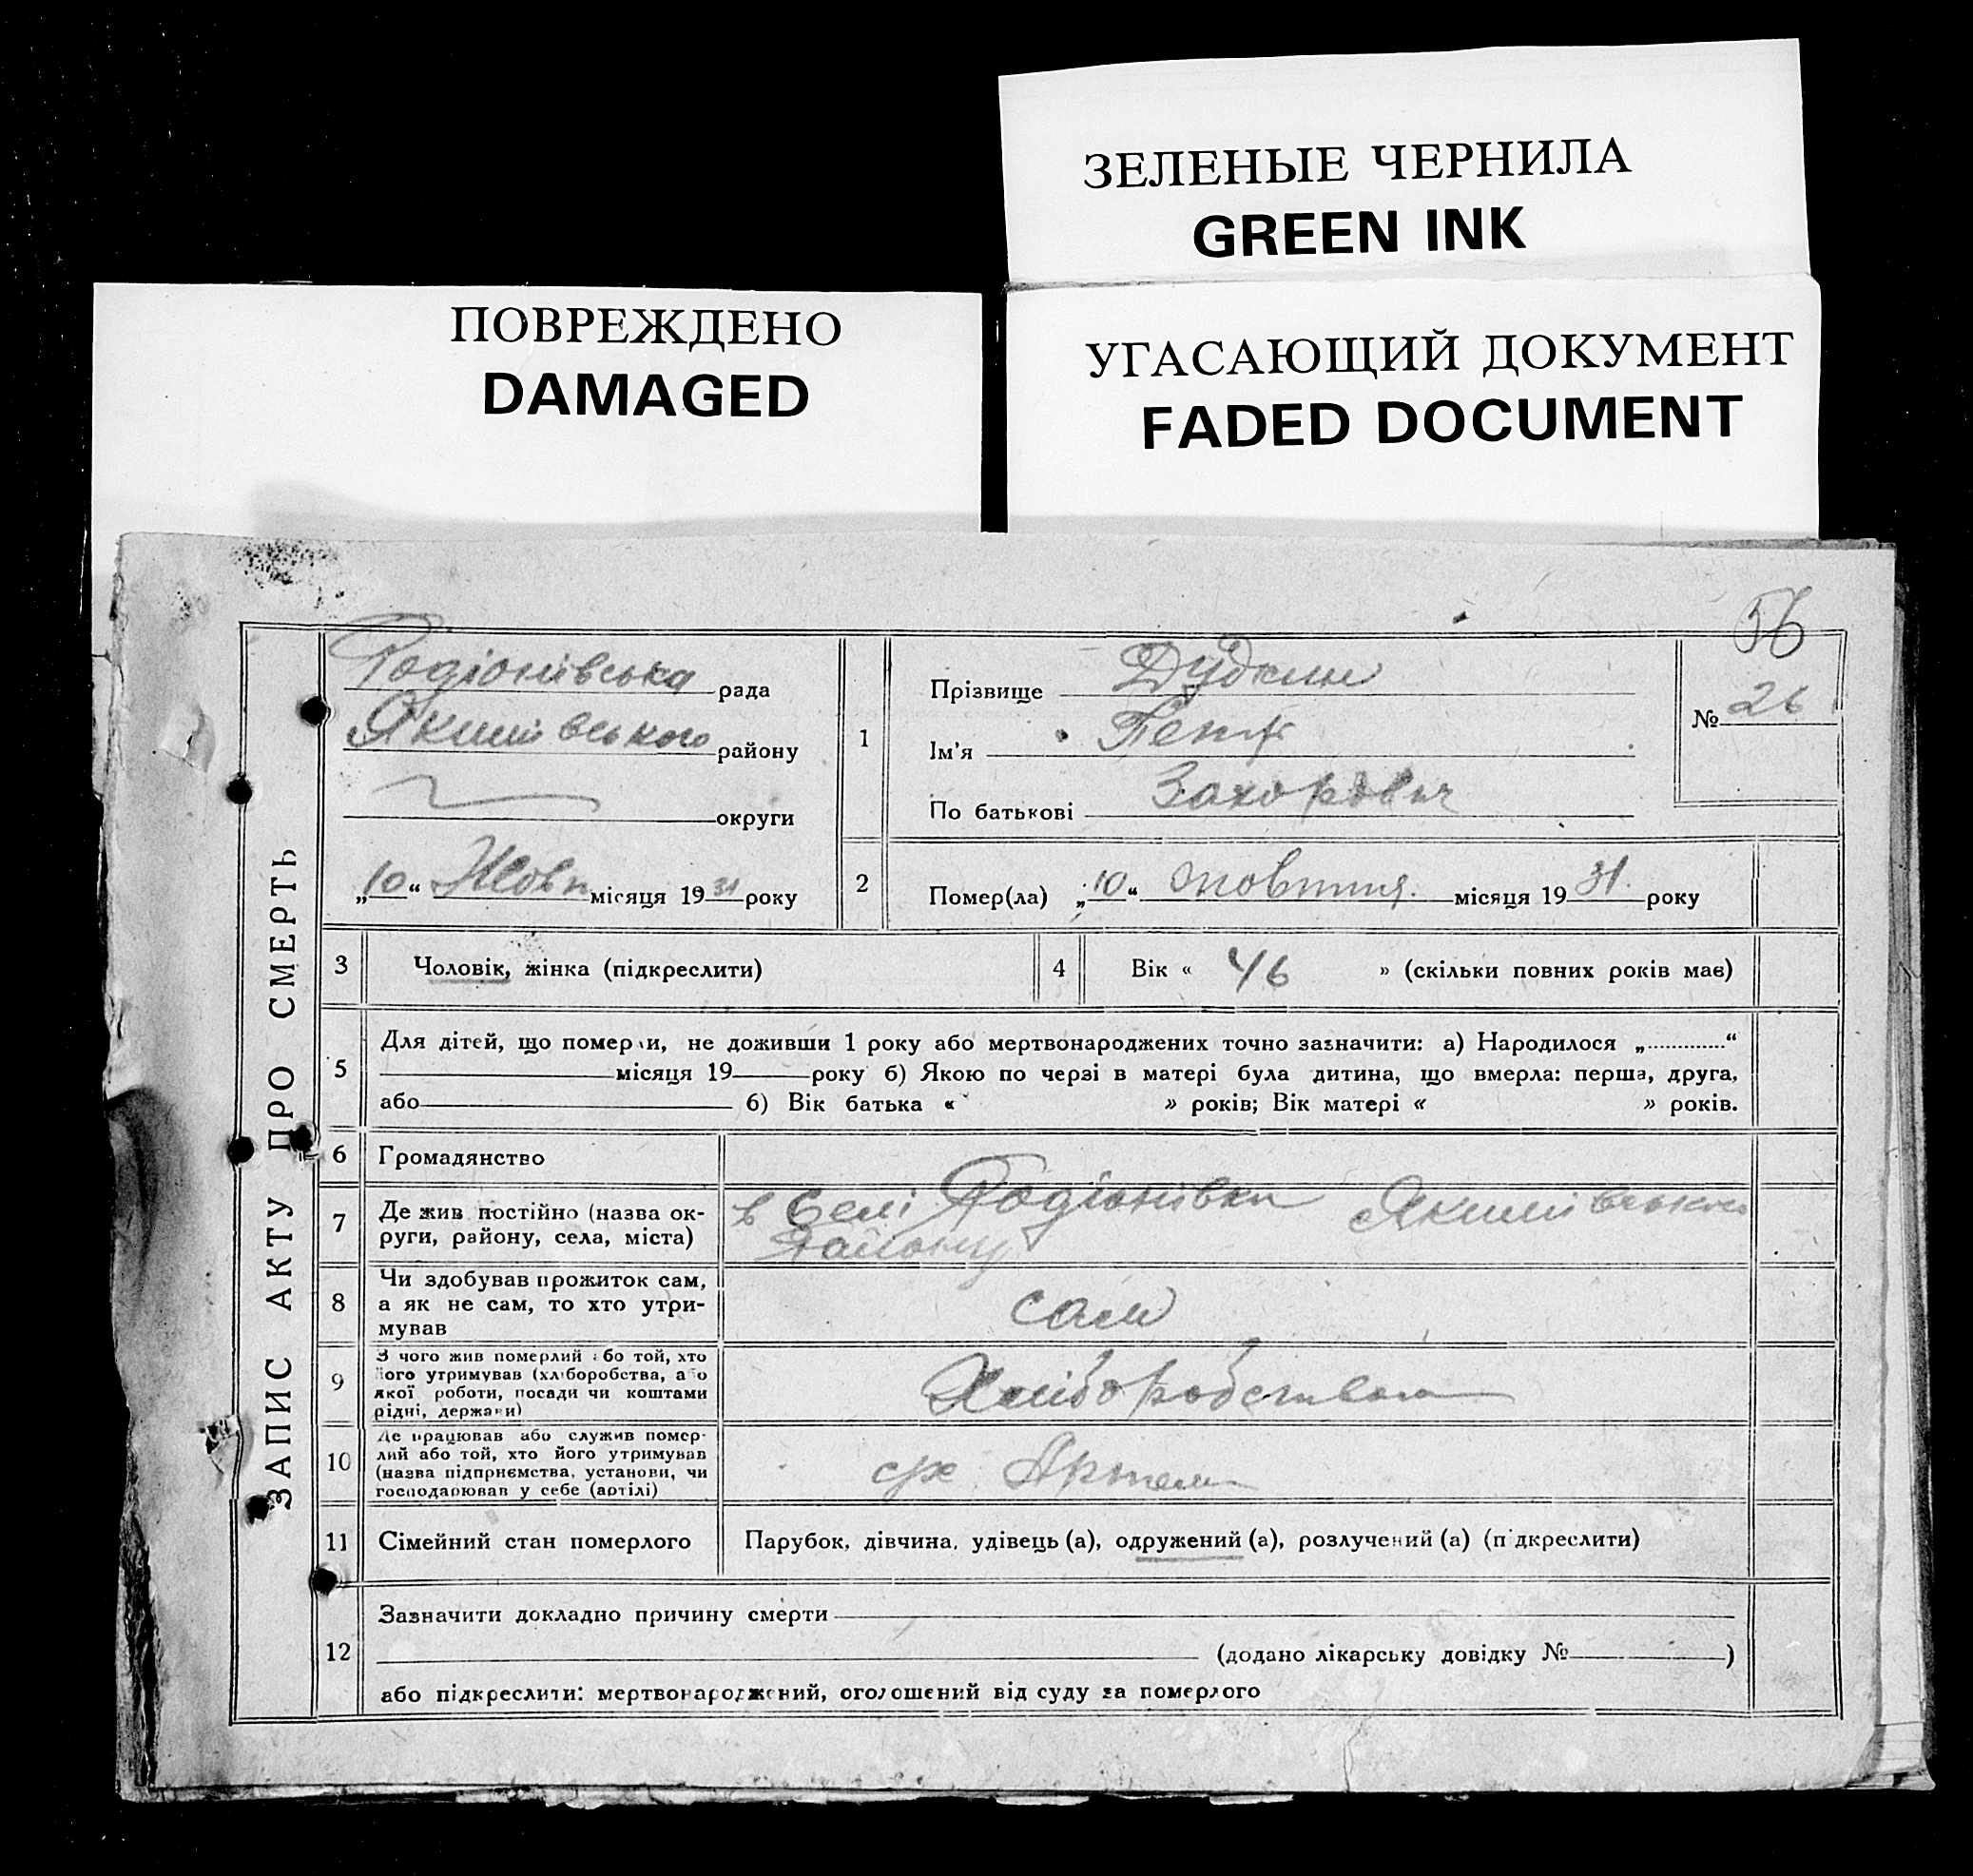 ЗЕЛЕНЫЕ ЧЕРНИЛА
GREEN INK
ПОВРЕЖДЕНО
DAMAGED
УГАСАЮЩИЙ ДОКУМЕНТ
FADED DOCUMENT
56
ЗАПИС АКТУ ПРО СМЕРТЬ
Родіонівська рада
Якимівського району
округи
„10“ Жовт місяця 1931 року
1
Прізвище Дудкин
Ім'я Петр
По батькові Захорович
№ 26
2
Помер(ла) „10“ жовтня місяця 1931. року
3 Чоловік, жінка (підкреслити)
4 Вік « 46 » (скільки повних років має)
5
Для дітей, що померли, не доживши 1 року або мертвонароджених точно зазначити: а) Народилося „.............“
місяця 19 року б) Якою по черзі в матері була дитина, що вмерла: перша, друга,
або б) Вік батька « » років; Вік матері « » років.
6 Громадянство
7 Де жив постійно (назва ок-
руги, району, села, міста)
в Селі Родіонівки Якимівського
Району
8 Чи здобував прожиток сам,
а як не сам, то хто утри-
мував
сам
9 З чого жив померлий або той, хто
його утримував (хліборобства, або
якої роботи, посади чи коштами
рідні, держави)
Хліборобством
10 Де працював або служив помер-
лий або той, хто його утримував
(назва підприємства, установи, чи
господарював у себе (артілі)
с/х Артели
11 Сімейний стан померлого
Парубок, дівчина, удівець (а), одружений (а), розлучений (а) (підкреслити)
12
Зазначити докладно причину смерти
(додано лікарську довідку № )
або підкреслити: мертвонароджений, оголошений від суду за померлого